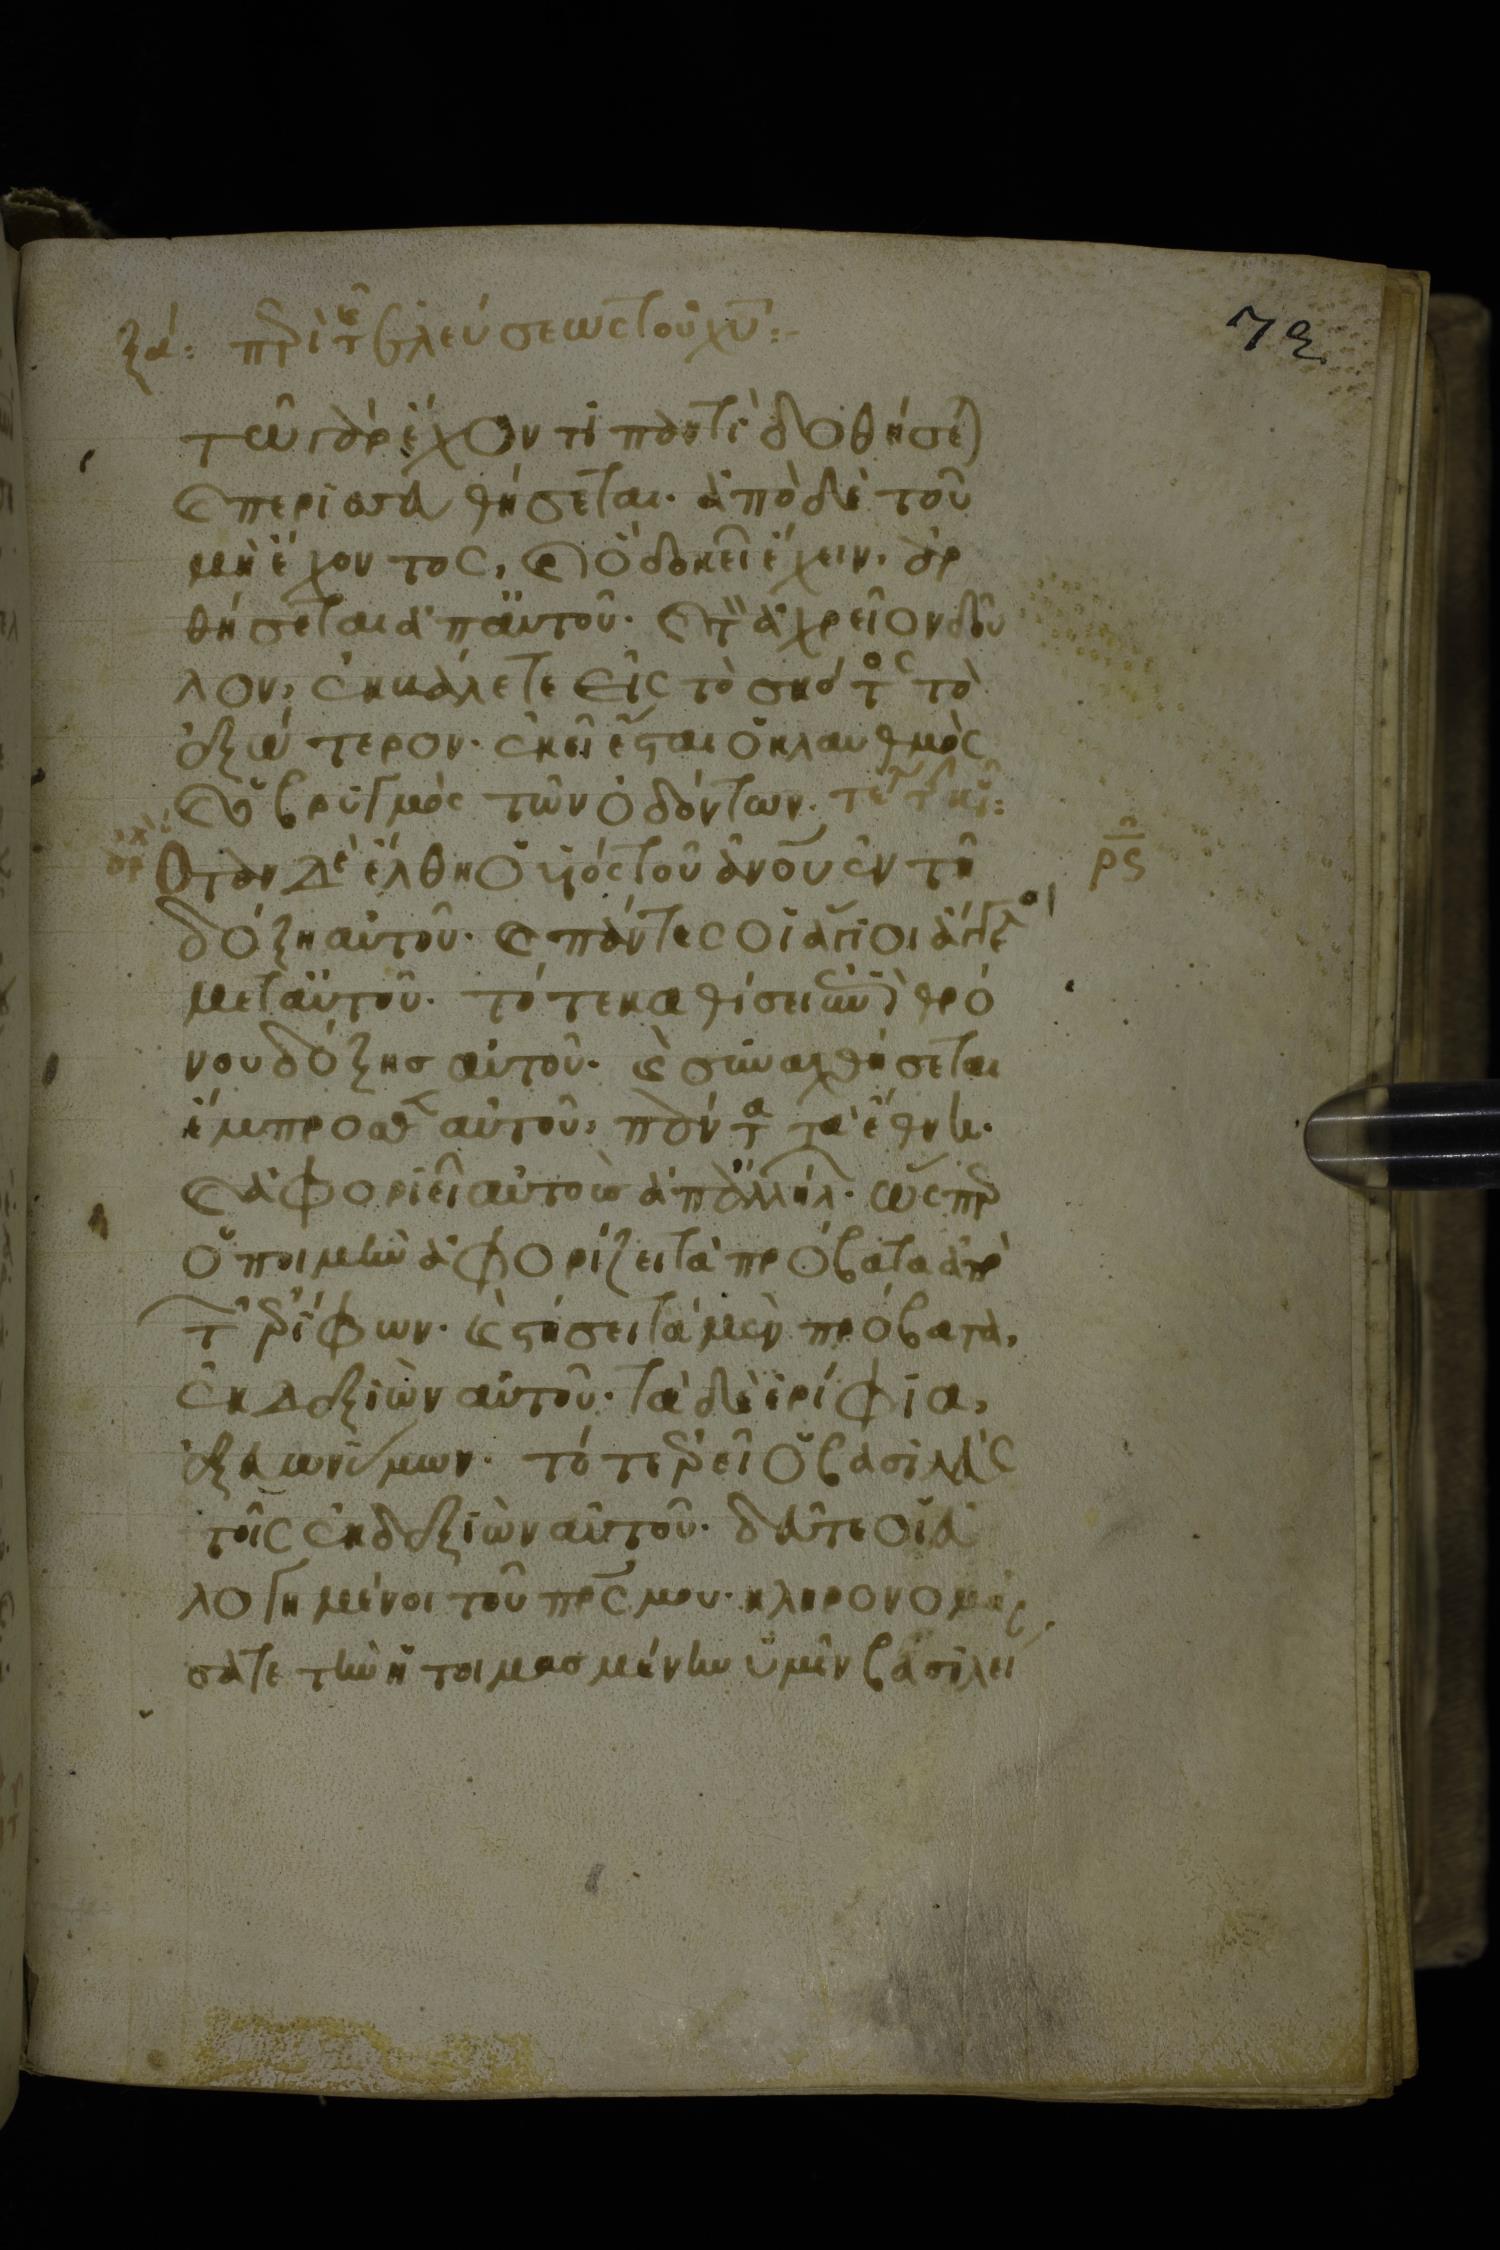 ξα: περὶ τῆς ἐλεύσεως τοῦ χυ:
72
τῶ γὰρ ἔχοντι παντὶ δοθήσε)
καὶ περισσευθήσεται· ἀπὸ δὲ τοῦ
μὴ ἔχοντος, καὶ ὃ δοκεῖ ἔχειν, ἀρ
θήσεται ἀπ αὐτοῦ· καὶ τὸν ἀχρεῖον δοῦ
λον, ἐκβάλετε εἰς τὸ σκότος τὸ
ἐξώτερον· ἐκεῖ ἔσται ὁ κλαυθμὸς
καὶ ὁ βρυγμὸς τῶν ὀδόντων· τε
Ὅταν δὲ ἔλθη ὁ υἱὸς τοῦ ανου ἐν τῆ
ρς
δόξη αὐτοῦ· καὶ πάντες οἱ ἅγιοι ἄγγελοι
μετ αὐτοῦ· τότε καθίσει ἐπὶ θρό
νου δόξης αὐτοῦ· καὶ συναχθήσεται
ἔμπροσθεν αὐτοῦ, πάντα τὰ ἔθνη·
καὶ ἀφοριεῖ αὐτοὺς ἀπ ἀλλήλων· ὥσπερ
ὁ ποιμὴν ἀφορίζει τὰ πρόβατα ἀπὸ
τῶν ἐρίφων· καὶ στήσει τὰ μὲν πρόβατα,
ἐκ δεξιῶν αὐτοῦ· τὰ δὲ ἐρίφια,
ἐξ εὐωνύμων· τότε ἐρεῖ ὁ βασιλεὺς
τοῖς ἐκ δεξιῶν αὐτοῦ· δεῦτε οἱ εὐ
λογημένοι τοῦ πρς μου· κληρονομή
σατε τὴν ἡτοιμασμένην ὑμῖν βασιλεί